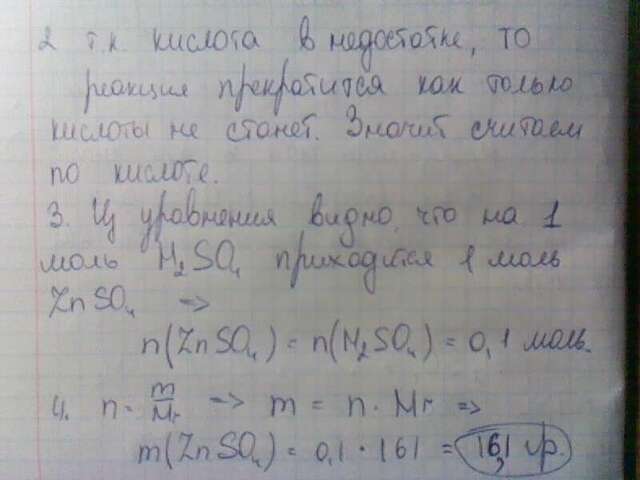 2 т.к. кислота в недостатке, то
реакция прекратится как только
кислоты не станет. Значит считаем
по кислоте.
3. Из уравнения видно, что на 1
моль H₂SO₄ приходится 1 моль
ZnSO₄ =>
n(ZnSO₄) = n(H₂SO₄) = 0,1 моль.
4. n = m/Mr => m = n · Mr =>
m(ZnSO₄) = 0,1 · 161 = 16,1 гр.